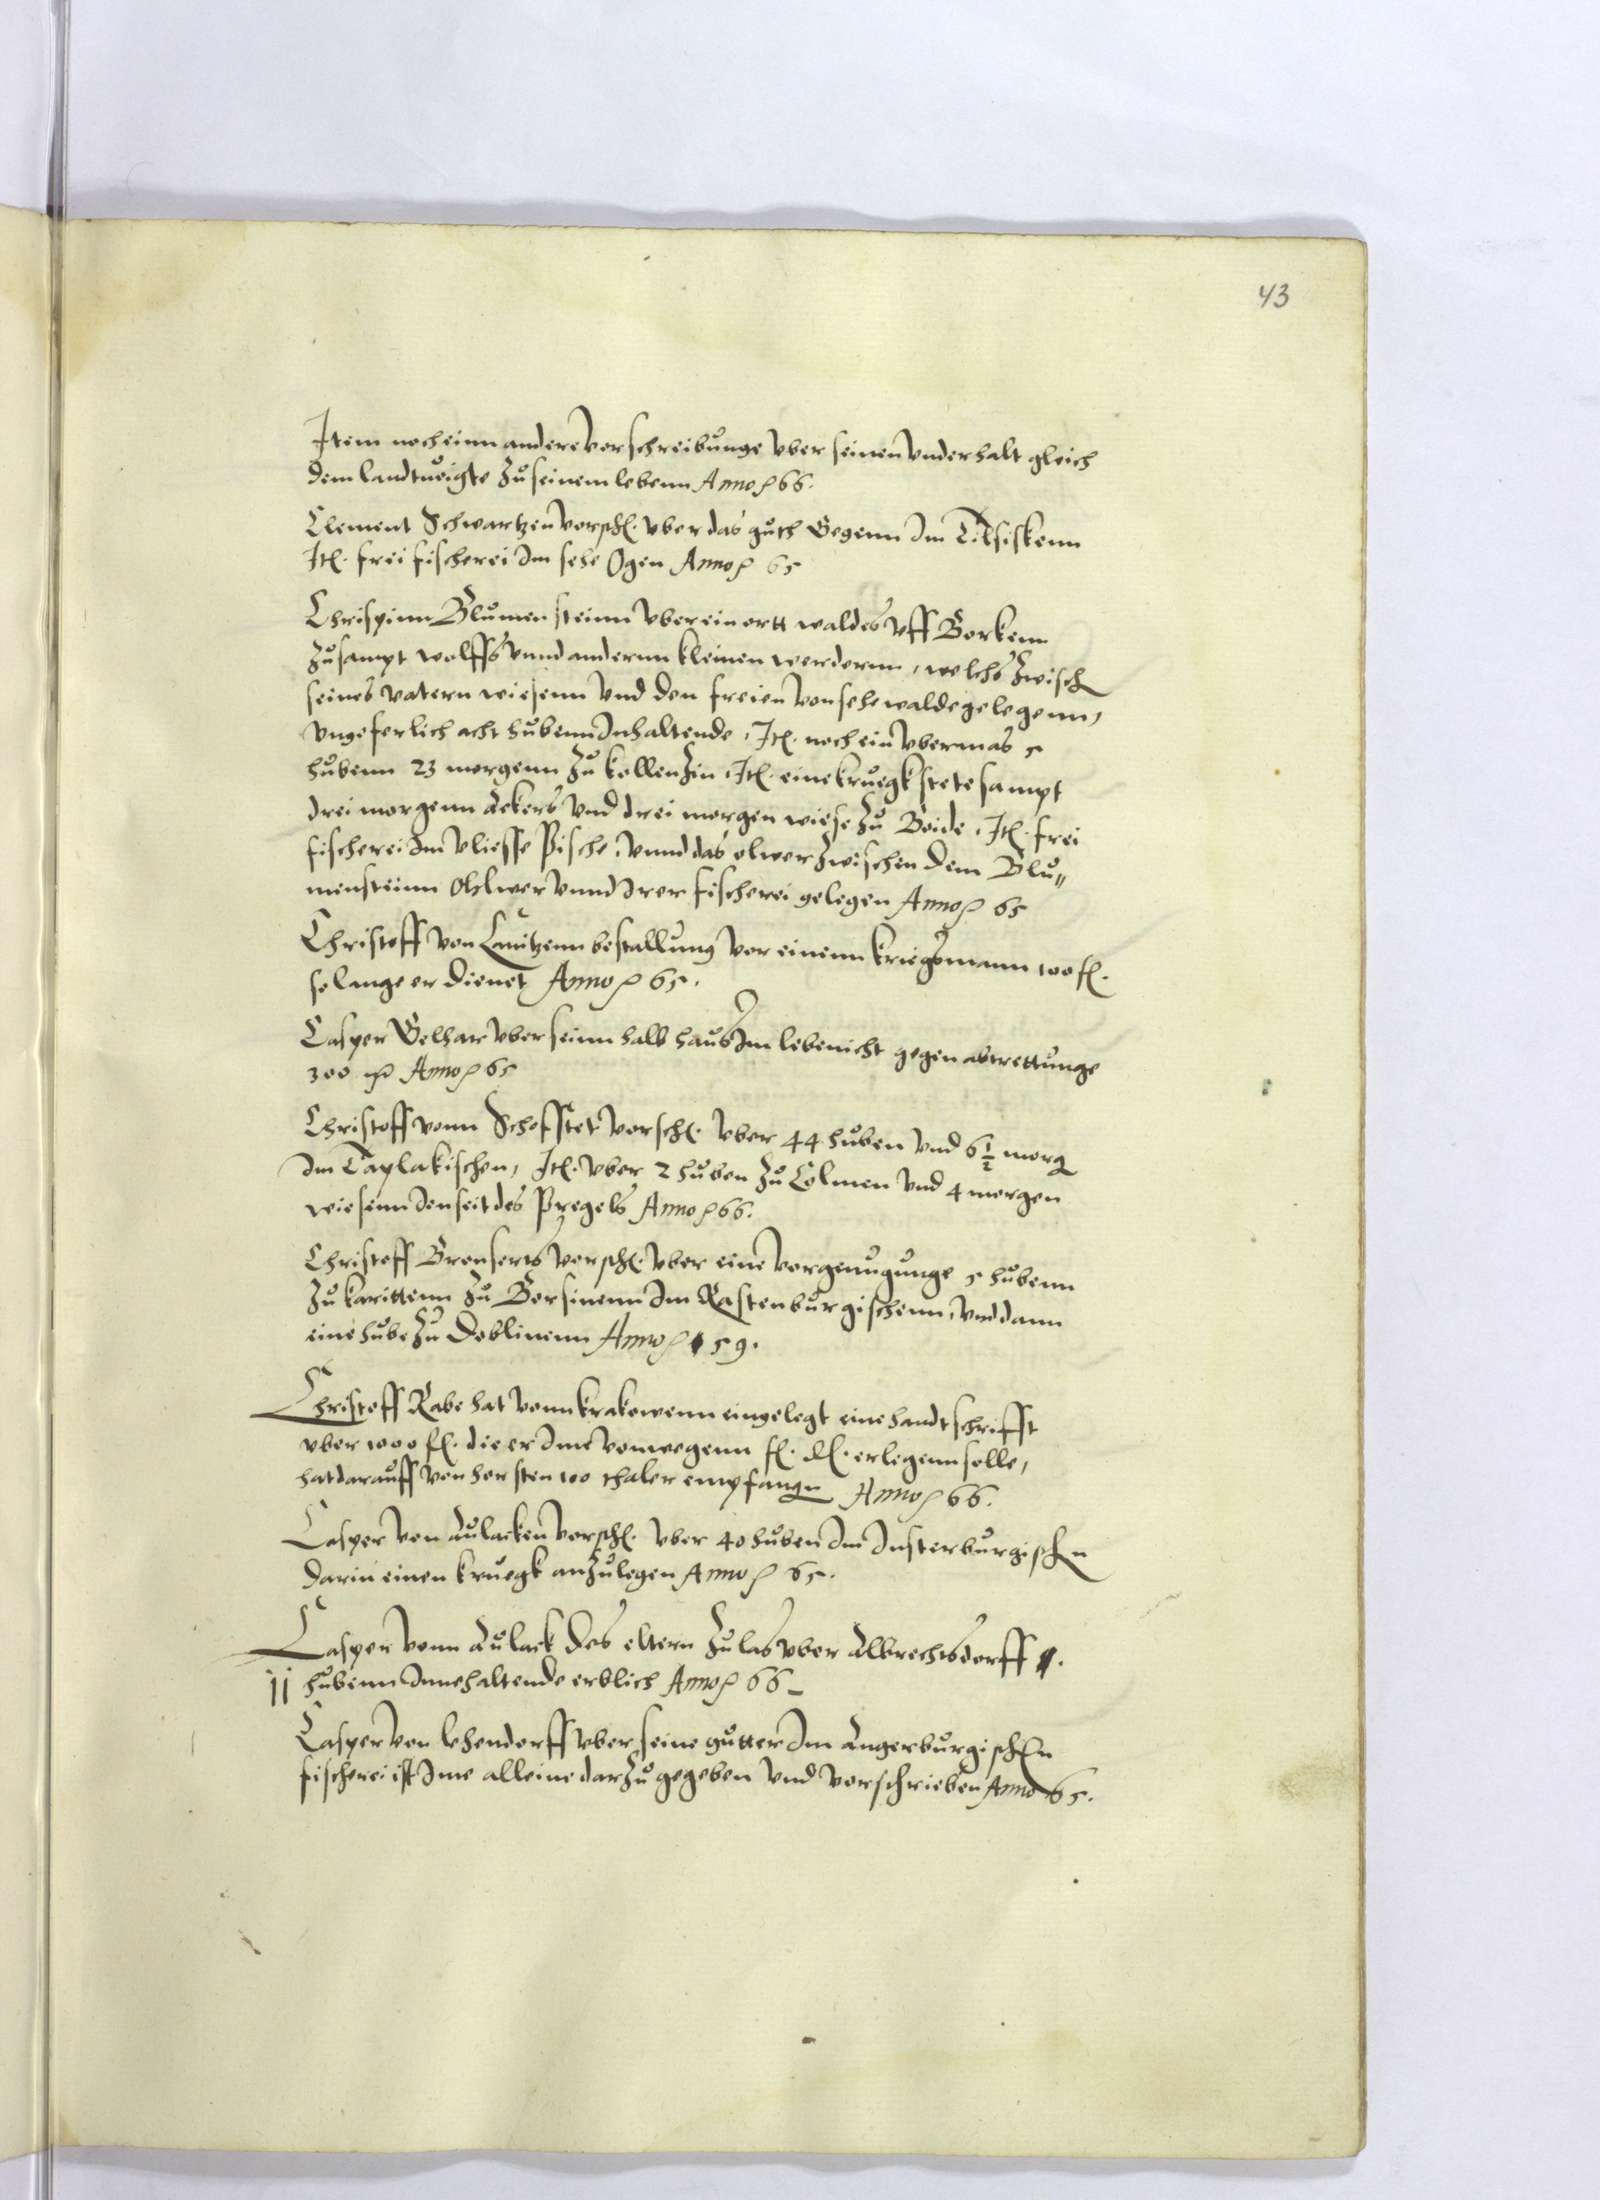 43
Item noch einn andere vorschreibunge vber seinen vnderhalt gleich
dem landtuoigte zu seinem lebenn Anno &c 66.
Clement Schwartzen vorsch. vber das guth Gegenn im Tilsiskenn
It. frei fischerei im sehe Ogen Anno &c 65
Chrispinn Blumensteinn vber ein ortt waldes vff Borkenn
zusampt wolffs vnnd andernn kleinen werdernn, welchs zwisch
seines vatern wiesenn vnd den freien von sehewalde gelegenn,
vngeferlich acht hubenn Inhaltende, It. noch ein vbermas 5
hubenn 23 morgenn zu kollenzin, It. eine kruegkstete sampt
drei morgenn Ackers vnd drei morgen wiese zu Beide, It. frei
fischerei Im vliesse Pische, vnnd das olwer zwischen dem Blu„
mensteinn Ohlwer vnnd irer fischerei gelegen Anno &c 65
Christoff von Kanitzenn bestallung vor einenn kriegsmann 100 fl.
solange er dienet Anno &c 65.
Casper Gelhar vber seinn halb haus Im lebenicht gegen abtrettunge
300 mr Anno &c 65
Christoff vonn Schofstet vorsch. vber 44 huben vnd 6 1/2 morg
Im Taplakischen, It. vber 2 huben zu Colmen vnd 4 morgen
wiesenn Jenseit des Pregels Anno &c 66.
Christoff Bronserts vorsch. vber eine vorgenugunge 5 hubenn
zu karittenn zu Borsinenn Im Rastenburgischenn, vnd dann
eine hube zu Deblinenn Anno &c 59.
Christoff Rabe hat vonn krakowenn eingelegt eine handtschrifft
vber 1000 fl. die er Ime vonwegenn f. d. erlegenn solle,
hat darauff von horsten 100 thaler empfangn Anno &c 66.
Casper von Aulacken vorsch. vber 40 huben Im Insterburgischen
darin einen kruegk anzulegen Anno &c 65.
Casper vonn Aulack des eltern zulas vber Albrechtsdorff
11 hubenn Innehaltende erblich Anno &c 66
Casper von lehendorff vber seine gutter Im Angerburgischen
fischerei ist Ime alleine darzu gegeben vnd vorschrieben Anno 65.